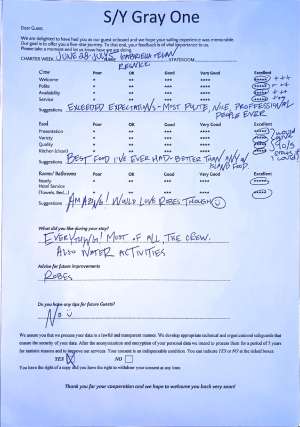 S/Y Gray One
Dear Guest,
We are delighted to have had you as our guest onboard and we hope your sailing experience was memorable.
Our goal is to offer you a five-star journey. To that end, your feedback is of vital importance to us.
Please take a moment and let us know how we are doing.
CHARTER WEEK JUNE 28-JULY 5 NAME GABRIELLA + EVAN STATEROOM
Crew Poor OK Good Very Good Excellent
Welcome * ** *** **** ***** +++
Polite * ** *** **** ***** +++
Availability * ** *** **** ***** ++
Service * ** *** **** ***** ++
Suggestions EXCEEDED EXPECTATIONS - MOST POLITE, NICE, PROFESSIONAL
PEOPLE EVER
Food Poor OK Good Very Good Excellent
Presentation * ** *** **** *****
Variety * ** *** **** *****
Quality * ** *** **** *****
Kitchen (clean) * ** *** **** *****
Suggestions BEST FOOD I'VE EVER HAD - BETTER THAN ANY
ISLAND FOOD
Rooms/ Bathrooms Poor OK Good Very Good Excellent
Nearly * ** *** **** *****
Hotel Service
(Towels, Bed...) * ** *** **** *****
Suggestions AMAZING! WOULD LOVE ROBES THOUGH
What did you like during your stay?
EVERYTHING! MOST OF ALL, THE CREW.
ALSO WATER ACTIVITIES
Advise for future improvements
ROBES
Do you have any tips for future Guests?
NO
We assure you that we process your data in a lawful and transparent manner. We develop appropriate technical and organizational safeguards that
ensure the security of your data. After the anonymization and encryption of your personal data we intend to process them for a period of 5 years
for statistic reasons and to improve our services. Your consent is an indispensable condition. You can indicate YES or NO at the ticked boxes:
YES X NO
You have the right of a copy and you have the right to withdraw your consent at any time.
Thank you for your cooperation and we hope to welcome you back very soon!